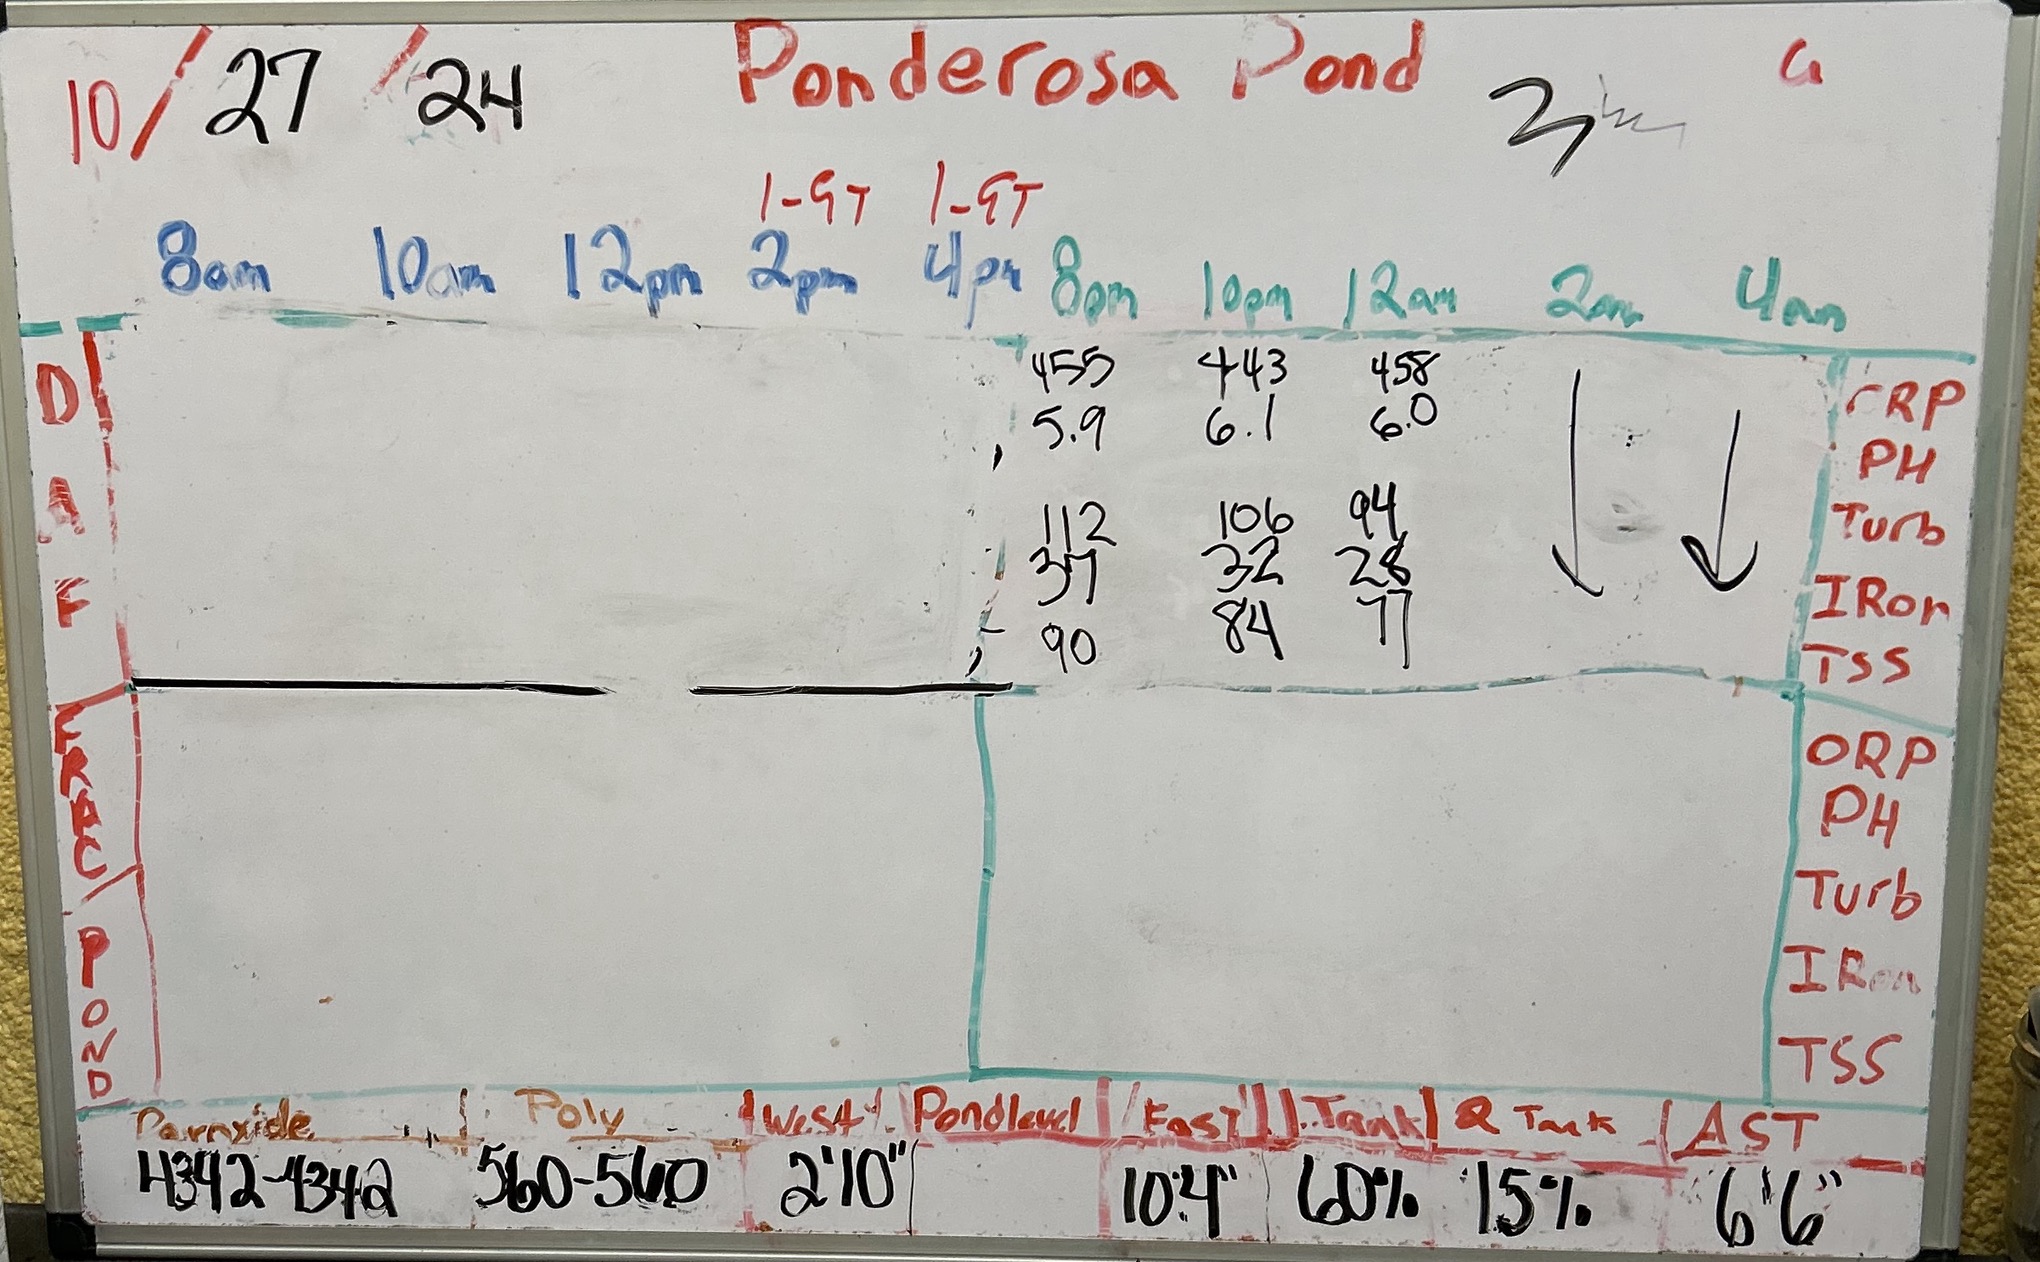 10/27/24 Ponderosa Pond
1-GT 1-GT
8am 10am 12pm 2pm 4pm 8pm 10pm 12am 2am 4am
D
A
F
455 443 458 ORP
5.9 6.1 6.0 PH
112 106 94 Turb
37 32 28 IRon
90 84 77 TSS
FRAC/
POND
ORP
PH
Turb
IRon
TSS
Peroxide Poly West Pond level East 1. Tank 2 Tank AST
4342-4342 560-560 2'10" 10'4" 60% 15% 6'6"